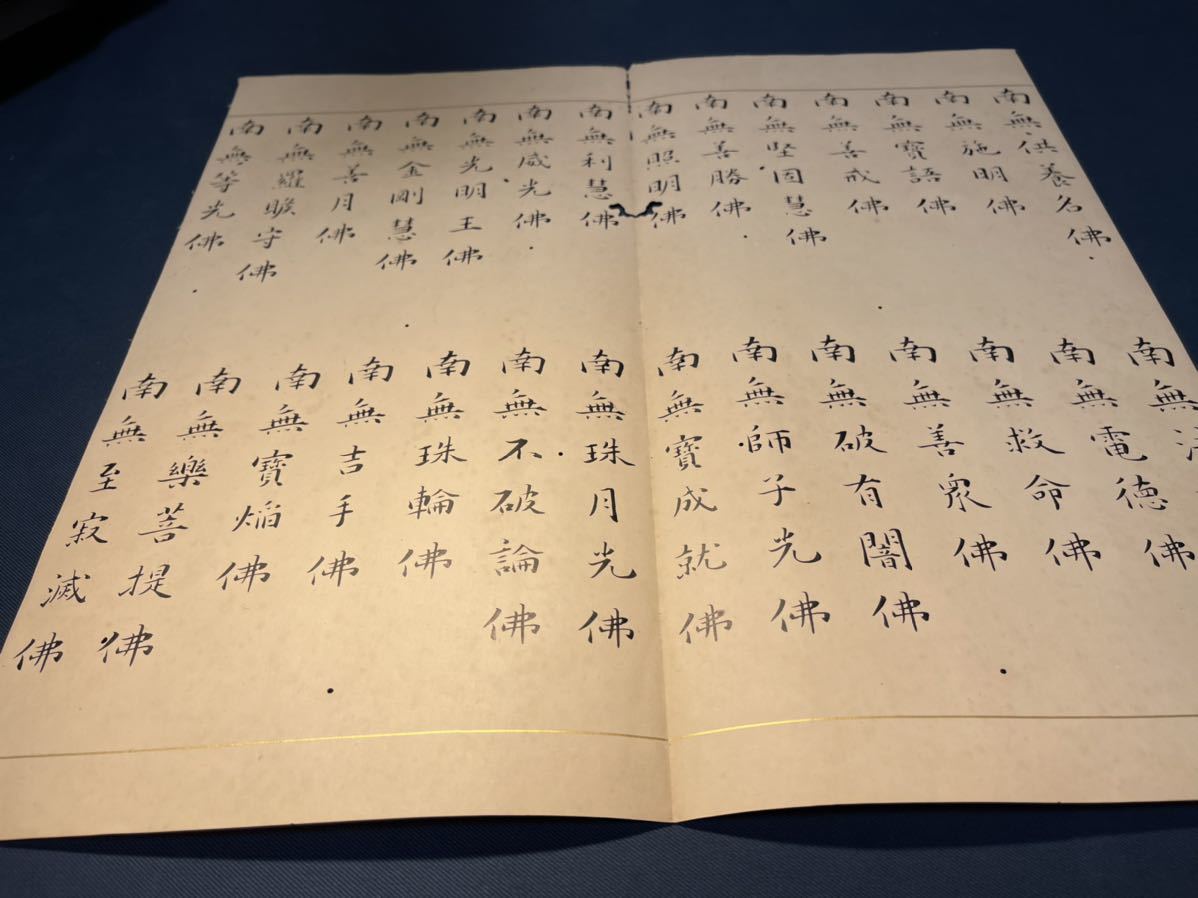 南無供養名佛
南無施明佛
南無寶語佛
南無善戒佛
南無堅固慧佛
南無善勝佛
南無照明佛
南無利慧佛
南無威光佛
南無光明王佛
南無金剛慧佛
南無善月佛
南無羅睺守佛
南無等光佛
南無
南無電徳佛
南無救命佛
南無善衆佛
南無破有闇佛
南無師子光佛
南無寶成就佛
南無珠月光佛
南無不破論佛
南無珠輪佛
南無吉手佛
南無寶焔佛
南無樂菩提佛
南無至寂滅佛